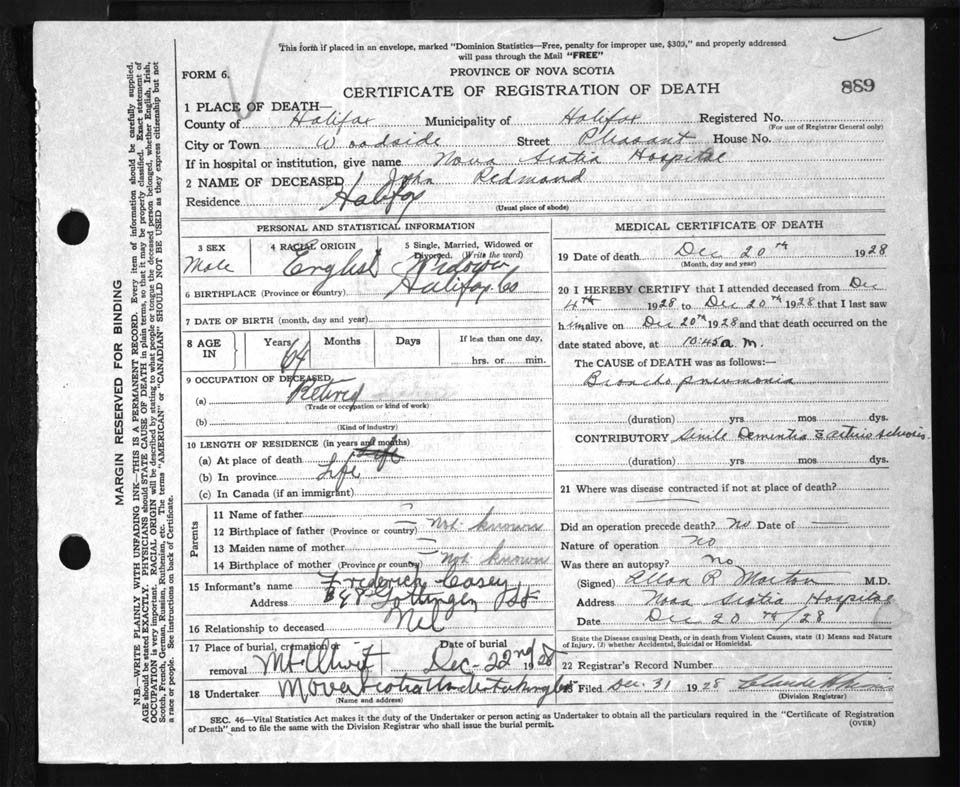 This form if placed in an envelope, marked "Dominion Statistics—Free, penalty for improper use, $300," and properly addressed
will pass through the Mail "FREE"
FORM 6.
PROVINCE OF NOVA SCOTIA
CERTIFICATE OF REGISTRATION OF DEATH
889
1 PLACE OF DEATH—
County of Halifax Municipality of Halifax Registered No.
(For use of Registrar General only)
City or Town Woodside Street Pleasant House No.
If in hospital or institution, give name Nova Scotia Hospital
2 NAME OF DECEASED John Redmond
Residence Halifax
(Usual place of abode)
PERSONAL AND STATISTICAL INFORMATION
3 SEX 4 RACIAL ORIGIN 5 Single, Married, Widowed or
Divorced. (Write the word)
Male English Widower
6 BIRTHPLACE (Province or country) Halifax Co
7 DATE OF BIRTH (month, day and year)
8 AGE IN Years 64 Months Days If less than one day,
hrs. or min.
9 OCCUPATION OF DECEASED
(a) Retired
(Trade or occupation or kind of work)
(b)
(Kind of industry)
10 LENGTH OF RESIDENCE (in years and months)
(a) At place of death Life
(b) In province Life
(c) In Canada (if an immigrant)
Parents
11 Name of father
12 Birthplace of father (Province or country) Not known
13 Maiden name of mother
14 Birthplace of mother (Province or country) Not known
15 Informant's name Frederick Casey
Address Gottingen St
16 Relationship to deceased Nil
17 Place of burial, cremation or Date of burial
removal Mt Olivet Dec - 22nd 1928
18 Undertaker Nova Scotia Undertaking Co
(Name and address)
MEDICAL CERTIFICATE OF DEATH
19 Date of death Dec 20th 1928
(Month, day and year)
20 I HEREBY CERTIFY that I attended deceased from Dec
4th 1928 to Dec 20th 1928 that I last saw
him alive on Dec 20th 1928 and that death occurred on the
date stated above, at 10:45 a.m.
The CAUSE OF DEATH was as follows:—
Broncho pneumonia
(duration) yrs mos dys.
CONTRIBUTORY Senile Dementia
(duration) yrs. mos. dys.
21 Where was disease contracted if not at place of death?
Did an operation precede death? No Date of —
Nature of operation No
Was there an autopsy? No
(Signed) Allan R Morton M.D.
Address Nova Scotia Hospital
Date Dec 20th/28
State the Disease causing Death, or in death from Violent Causes, state (1) Means and Nature
of Injury, (2) whether Accidental, Suicidal or Homicidal.
22 Registrar's Record Number
Filed Dec 31 1928
(Division Registrar)
SEC. 46—Vital Statistics Act makes it the duty of the Undertaker or person acting as Undertaker to obtain all the particulars required in the "Certificate of Registration
of Death" and to file the same with the Division Registrar who shall issue the burial permit.
(OVER)
MARGIN RESERVED FOR BINDING
N.B.—WRITE PLAINLY WITH UNFADING INK—THIS IS A PERMANENT RECORD. Every item of information should be carefully supplied.
AGE should be stated EXACTLY. PHYSICIANS should STATE CAUSE OF DEATH in plain terms, so that it may be properly classified. Exact statement of
OCCUPATION is very important. RACIAL ORIGIN will be described by stating to what people or tongue the deceased person belonged, whether English, Irish,
Scotch, French, German, Russian, Ruthenian, etc. The terms "AMERICAN" or "CANADIAN" SHOULD NOT BE USED as they express citizenship but not
a race or people. See instructions on back of Certificate.